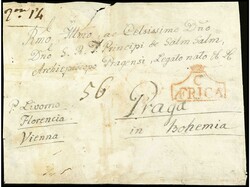 Rmo Altmo ac Celsissimo Dño
Dño S. R. I. Principi de Salm Salm,
Archiepiscopo Pragensi, Legito nato
56
C
AFRICA
Praga
in Bohemia
p Livorno
Florencia
Vienna